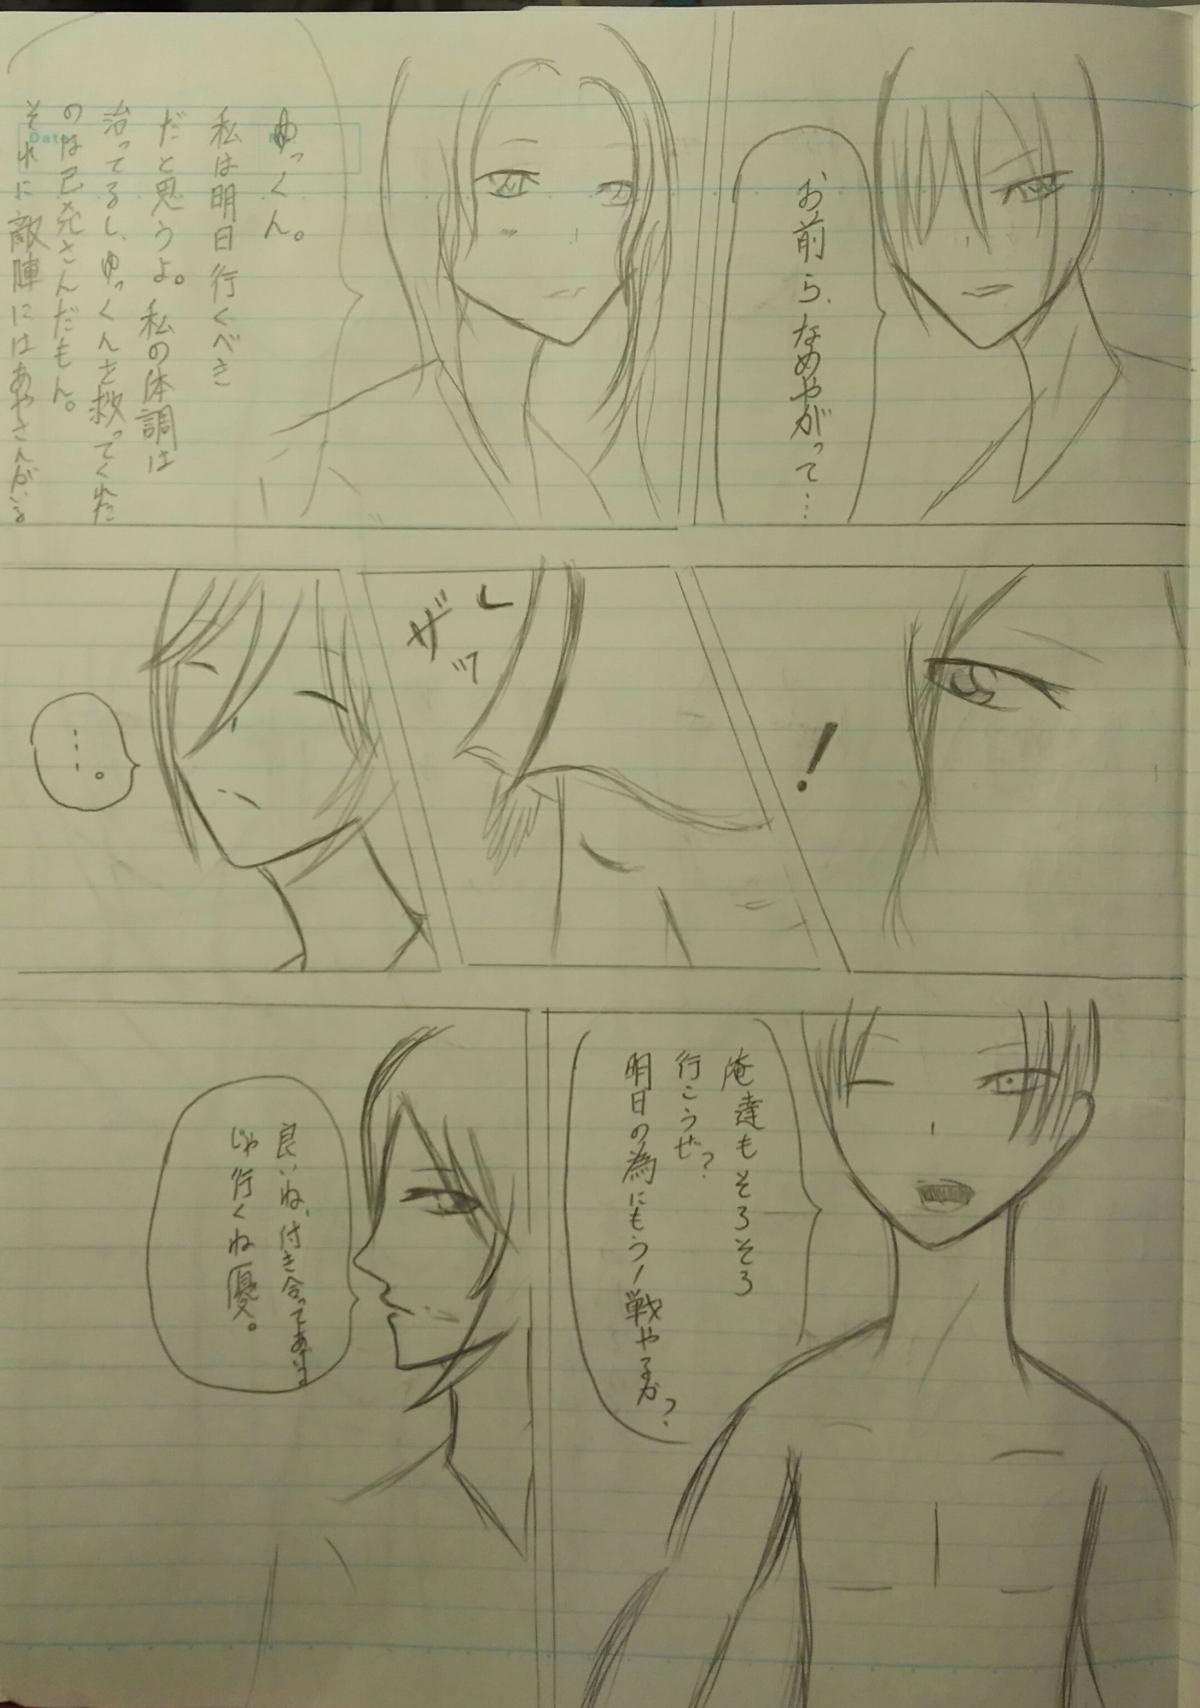 お前ら、なめやがって…
ゆっくん。
私は明日行くべき
だと思うよ。私の体調は
治ってるし、ゆっくんを救ってくれた
のは さんだもん。
それに敵陣にはあやさんがいる
Date
!
ザッ
…。
俺達もそろそろ
行こうぜ?
明日の為にもう1戦やるか?
良いね、付き合ってあげるよ
じゃ行くね優。